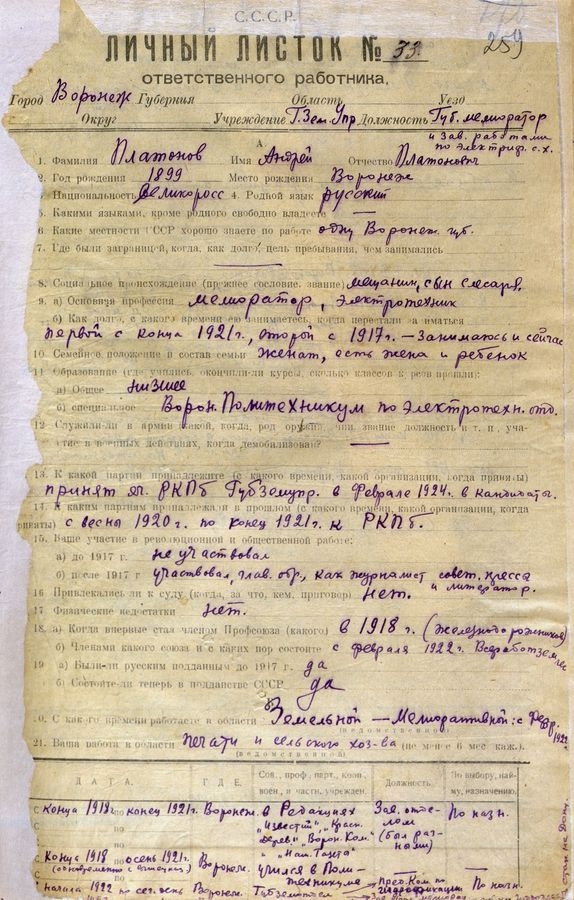 С.С.С.Р.
259
ЛИЧНЫЙ ЛИСТОК № 33.
ответственного работника.
Город Воронеж Губерния Область Уезд
Округ Учреждение Г.Зем.Упр Должность Губ. мелиоратор
и Зав. работами
по электриф. с.х.
А.
1. Фамилия Платонов Имя Андрей Отчество Платонович
2. Год рождения 1899 Место рождения Воронеж
Национальность Великоросс 4. Родной язык русский
5. Какими языками, кроме родного свободно владеете —
6. Какие местности СССР хорошо знаете по работе одну Воронеж. губ.
7. Где были заграницей, когда, как долго, цель пребывания, чем занимались
8. Социальное происхождение (прежнее сословие, звание) мещанин, сын слесаря,
9. а) Основная профессия мелиоратор, электротехник
б) Как долго, с какого времени ею занимаетесь, когда перестали заниматься
первой с конца 1921 г., второй с 1917 г. — Занимаюсь и сейчас
10. Семейное положение и состав семьи женат, есть жена и ребенок
11. Образование (где учились, окончили ли курсы, сколько классов к рев прошли):
а) Общее низшее
б) специальное Ворон. Политехникум по электротехн. отд.
12 Служили ли в армии (какой, когда, род оружия, чин, звание должность и т. п., уча-
стие в военных действиях, когда демобилизован)? —
13. К какой партии принадлежите (с какого времени, какой организации, когда приняты)
принят яч. РКПб Губземупр. в Феврале 1924 г. в кандидаты.
14. К каким партиям принадлежали в прошлом (с какого времени, какой организации, когда
приняты) с весны 1920 г. по конец 1921 г. к РКПб.
15. Ваше участие в революционной и общественной работе:
а) до 1917 г. не участвовал
б) после 1917 г. участвовал, глав. обр., как журналист совет. пресса
и литератор.
16 Привлекались ли к суду (когда, за что, кем, приговор) нет.
17 Физические недостатки нет.
18. а) Когда впервые стал членом Профсоюза (какого) в 1918 г. (железнодорожников)
б) Членами какого союза и с каких пор состоите с февраля 1922 г. Всеработземлес
19 а) Были-ли русским подданным до 1917 г. да
б) Состоите-ли теперь в подданстве СССР да
20. С какого времени работаете в области Земельной — Мелиоративной: с Февр. 1922
(ведомственной)
21. Ваша работа в области печати и сельского хоз-ва (не менее 6 мес каж.).
(ведомственной)
ДАТА. ГДЕ. Сов., проф., парт., кооп., воен., и части. учрежден. Должность. По выбору, най-
му, назначению.
С конца 1918 по конец 1921 г. Воронеж. в Редакциях Зав. отде- По назн.
С по „Известий", „Красн. лом
С по „Ворон. Ком." (был раз-
„Наш. Газета" нами)
С Конца 1918 осень 1921 г. Воронеж. учился в Поли-
техникуме
начала 1922 по сег. день Воронеж. Губземотдел Пред. Ком. по гидрофикации По назн.